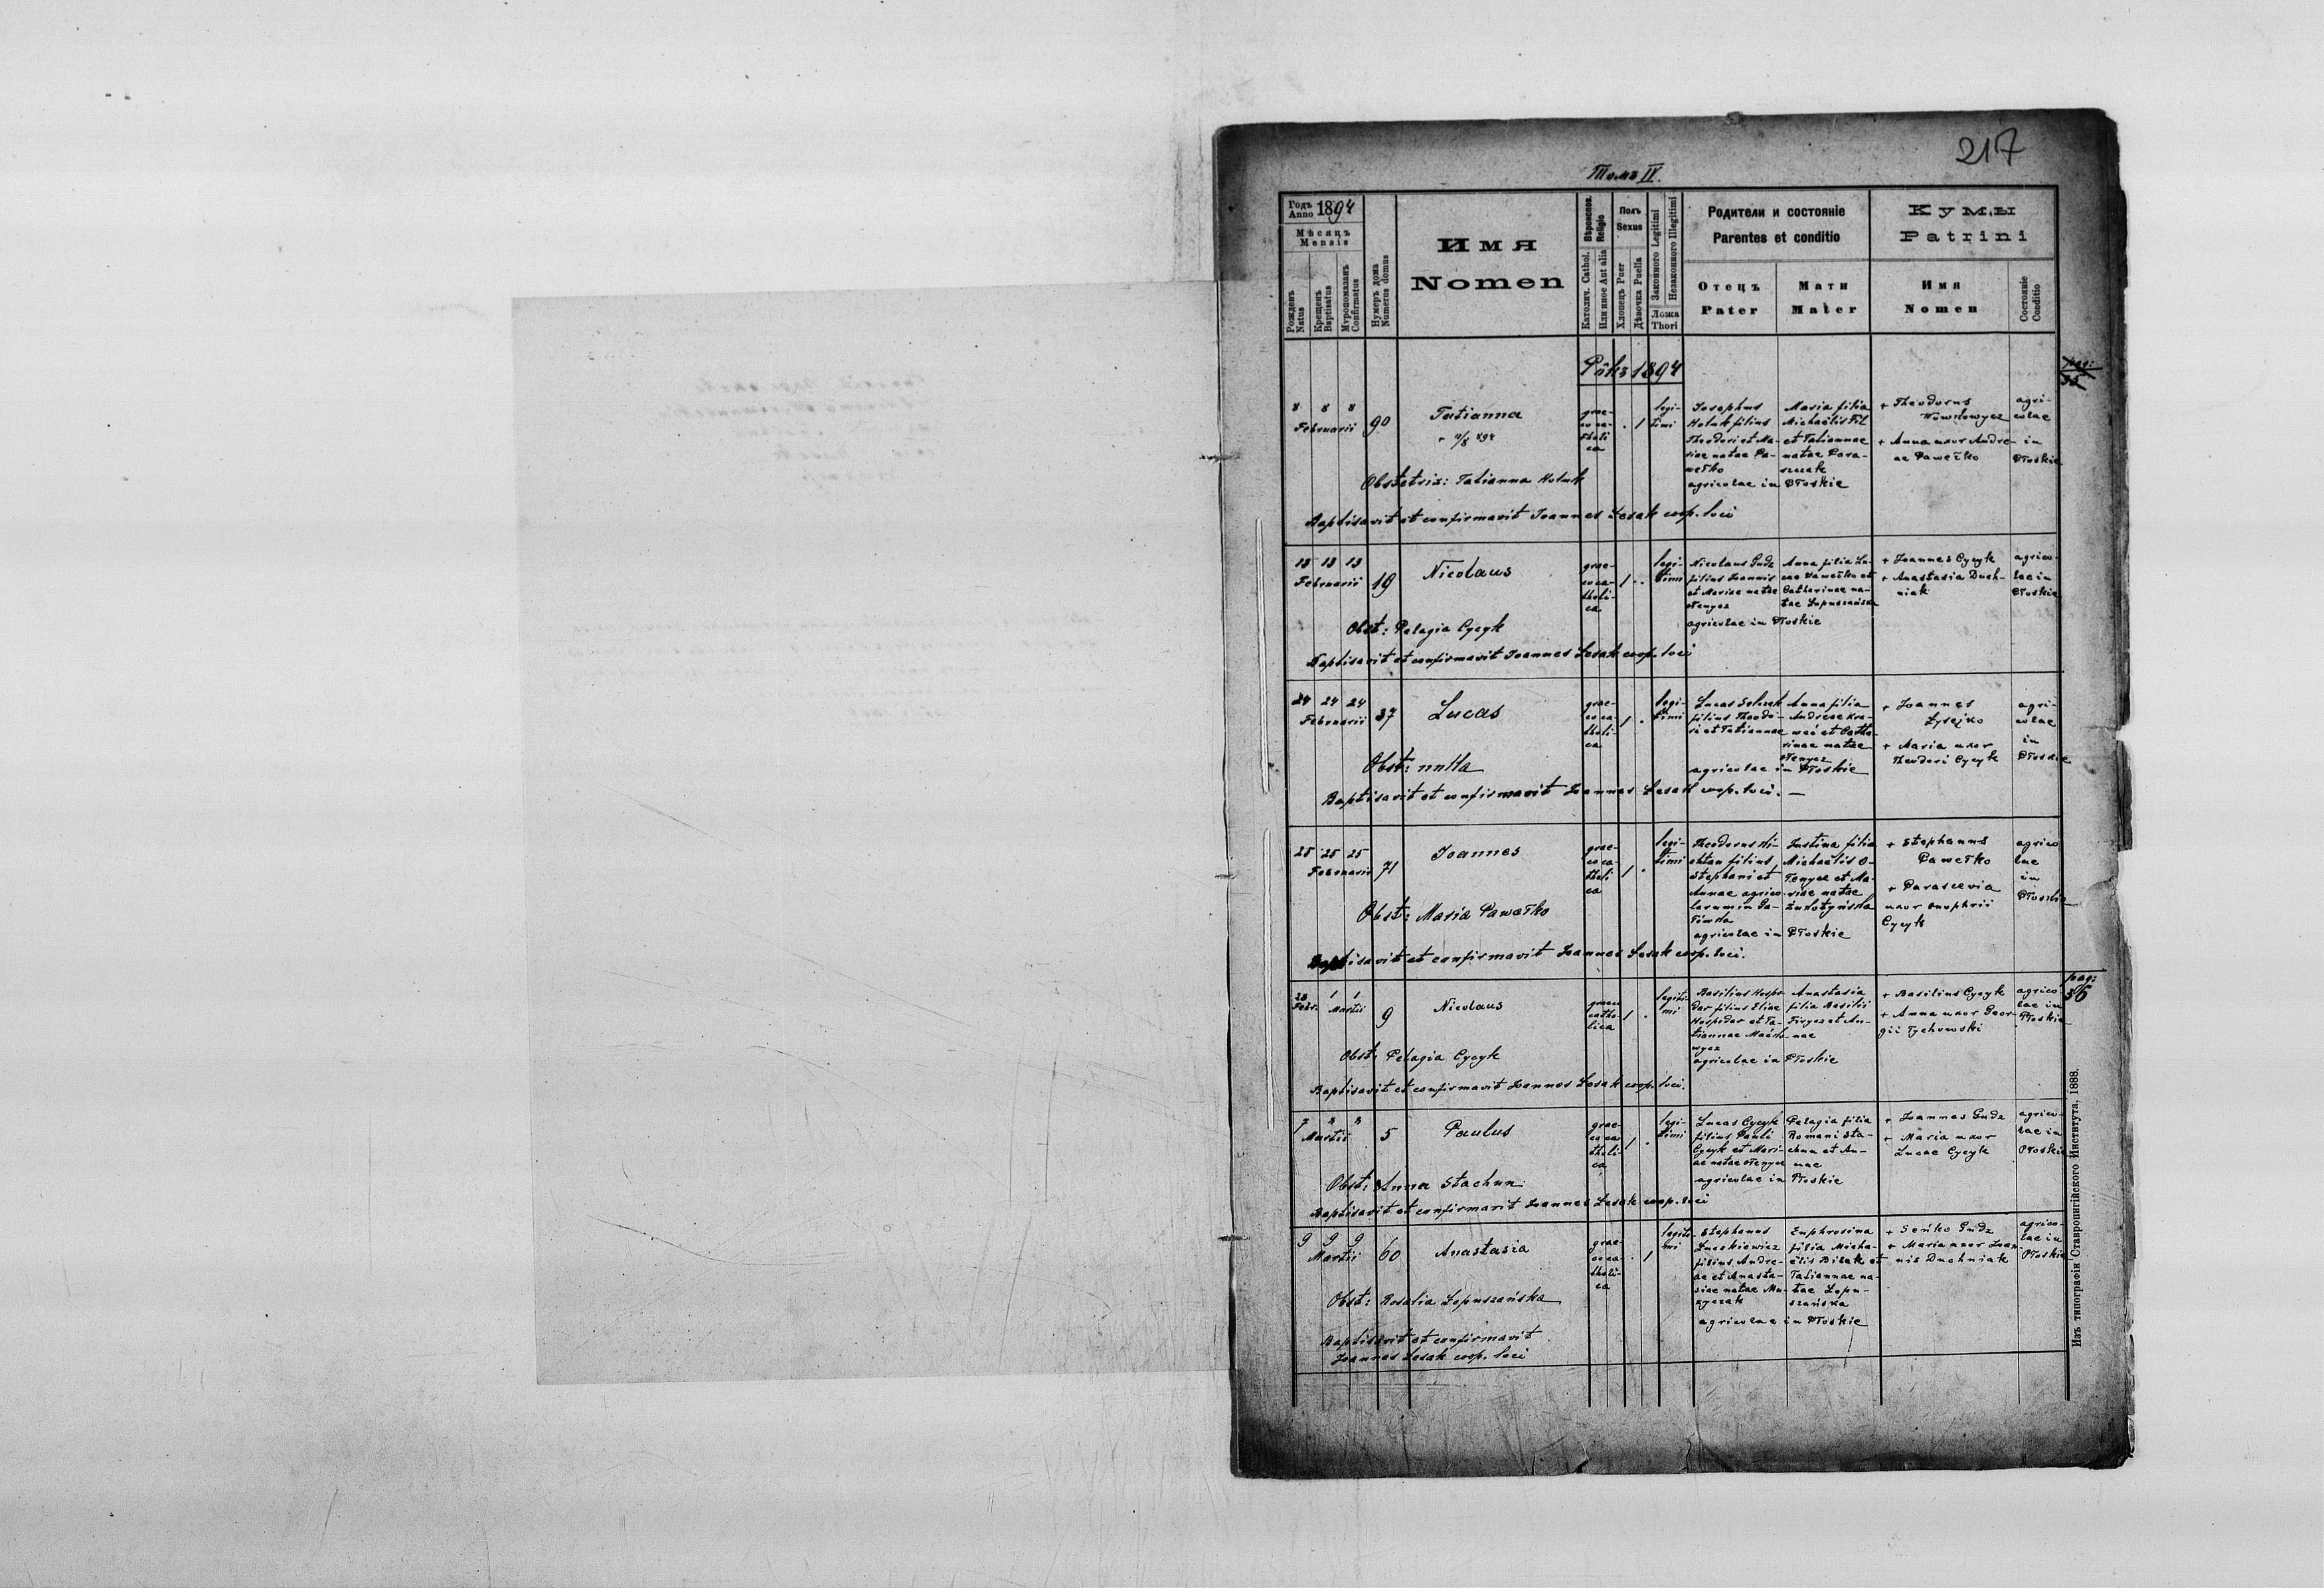 217
Томъ IV.
Годъ Anno 1894
Мѣсяцъ
Mensis
Рожденъ
Natus
Крещенъ
Baptisatus
Мѵропомазанъ
Confirmatus
Нумеръ дома
Numerus domus
Имя
Nomen
Вѣроиспов.
Religio
Католич. Cathol.
Или иное Aut alia
Полъ
Sexus
Хлопецъ Puer
Дѣвочка Puella
Законного Legitimi
Незаконного Illegitimi
Ложа
Thori
Родители и состояніе
Parentes et conditio
Отецъ
Pater
Мати
Mater
Кумы
Patrini
Имя
Nomen
Состояніе
Conditio
Рôкъ 1894
8 8 8
Februarii
90
Tatianna
grae-
co ca-
tholi
ca
1
legi-
timi
Josephus
Hołuk filius
Theodori et Ma-
riae natae Pa-
wełko
agricolae in Płoskie
Maria filia
Michaëlis Fil
et Tatiannae
natae Para-
szczak
+ Theodorus
+ Anna uxor Andre-
ae Pawełko
agri-
colae
in
Płoskie
Obstetrix: Tatianna Hołuk
Baptisavit et confirmavit Joannes Lesak coop. loci
13 13 13
Februarii
19
Nicolaus
grae-
co ca-
tholi-
ca
1
legi-
timi
Nicolaus Gudz
filius Joannis
et Mariae natae
Ołenycz
agricolae in Płoskie
Anna filia Lu-
cae Pawełko et
Catherinae na-
tae Łopuszańska
+ Joannes Cycyk
+ Anastasia Duch-
niak
agrico-
lae in
Płoskie
Obst: Pelagia Cycyk
Baptisavit et confirmavit Joannes Lesak coop. loci
24 24 24
Februarii
37
Lucas
grae-
co ca-
tholi-
ca
1
legi-
timi
filius Theodo-
ri et Tatiannae
agricolae in Płoskie
Anna filia
Andreae
et Catha-
rinae natae
Ołenycz
+ Joannes
Łysejko
+ Maria uxor
Theodori Cycyk
agri-
colae
in
Płoskie
Obst: nulla
Baptisavit et confirmavit Joannes Lesak coop. loci. —
25 25 25
Februarii
71
Joannes
grae-
co ca-
tholi
ca
1
legi-
timi
filius
Stephani et
Annae agrico-
larum in
agricolae in Płoskie
Justina filia
Michaëlis O-
łenycz et Ma-
riae natae
+ Stephanus
Pawełko
+ Parascevia
uxor Onuphrii
Cycyk
agrico
lae
in
Płoskie
Obst: Maria Pawełko
Baptisavit et confirmavit Joannes Lesak coop. loci.
pag:
36
28 1 1
Febr. Martii
9
Nicolaus
graeco
catho-
lica
1
legiti-
mi
Basilius Hospo-
dar filius Eliae
Hospodar et Ta-
tiannae
agricolae in Płoskie
Anastasia
filia Basilii
et An-
nae
+ Basilius Cycyk
+ Anna uxor Geor-
gii Tychowski
agrico-
lae in
Płoskie
Obst: Pelagia Cycyk
Baptisavit et confirmavit Joannes Lesak coop. loci.
7 " "
Martii
5
Paulus
grae-
co ca-
tholi-
ca
1
legi-
timi
Lucas Cycyk
filius Pauli
Cycyk et Mari-
ae natae Ołenycz
agricolae in Płoskie
Pelagia filia
Romani Sta-
chun et An-
nae
+ Joannes Gudz
+ Maria uxor
Lucae Cycyk
agrico-
lae in
Płoskie
Obst: Anna Stachun
Baptisavit et confirmavit Joannes Lesak coop. loci
9 9 9
Martii
60
Anastasia
grae-
co ca-
tholi-
ca
1
legiti-
mi
Stephanus
filius Andre-
ae et Anasta-
siae natae
agricolae in Płoskie
Euphrosina
filia Micha-
ëlis Bilak et
Tatiannae na-
tae Łopu-
szańska
+ Seńko Gudz
+ Maria uxor Joan-
nis Duchniak
agrico-
lae in
Płoskie
Obst: Rosalia Łopuszańska
Baptisavit et confirmavit
Joannes Lesak coop. loci
Изъ типографіи Ставропигійского Института, 1888.